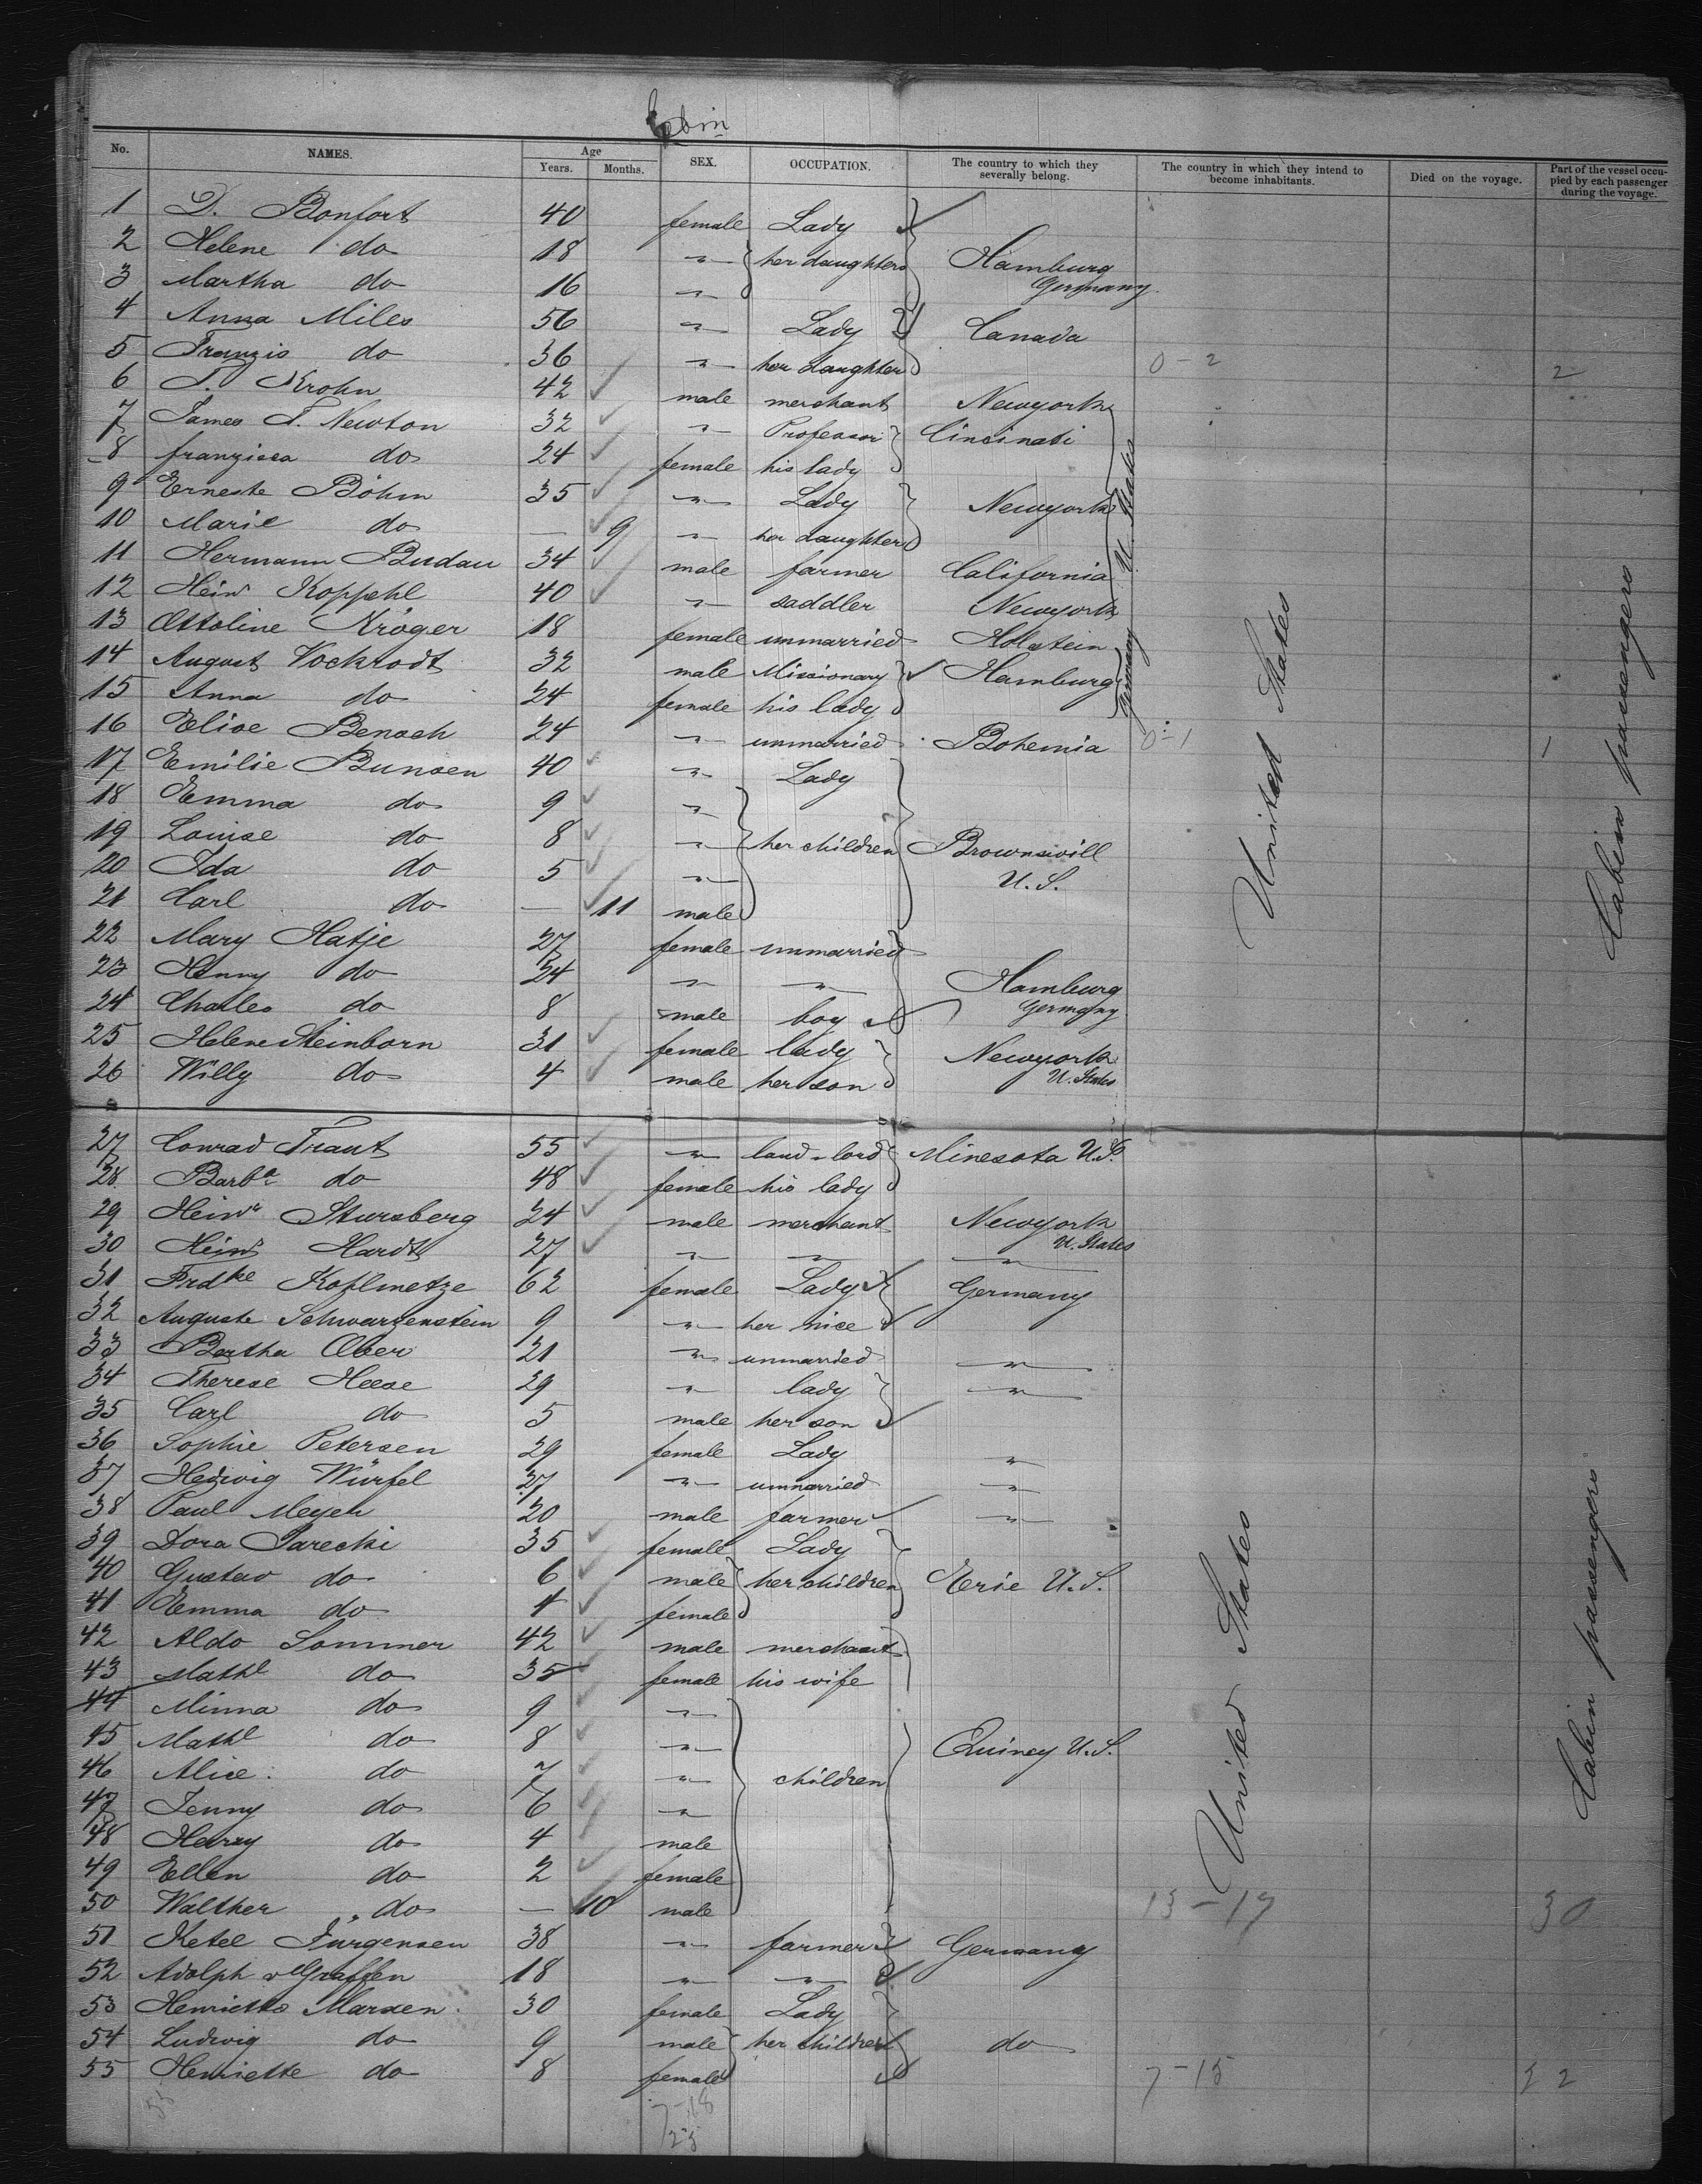 No. NAMES. Age Years. Months. SEX. OCCUPATION. The country to which they severally belong. The country in which they intend to become inhabitants. Died on the voyage. Part of the vessel occupied by each passenger during the voyage.
1 D. Bonfort 40 female Lady
2 Helene do 18 " her daughters Hamburg
3 Martha do 16 " Germany
4 Anna Miles 56 " Lady Canada
5 Franzis do 36 " her daughter 0-2 2
6 T. Krohn 42 male merchant Newyork
7 James T. Newton 32 " Professor Cincinati
8 franzisca do 24 female his lady U. States
9 Erneste Böhm 35 " Lady Newyork
10 Marie do — 9 " her daughter
11 Hermann Budau 34 male farmer California
12 Heinr Koppehl 40 " saddler Newyork
13 Ottoline Kröger 18 female unmarried Holstein
14 August Vockrodt 32 male Missionary Hamburg Germany
15 Anna do 24 female his lady
16 Elise Benach 24 " unmarried Bohemia 0-1 1
17 Emilie Bunsen 40 " Lady United States Cabin passengers
18 Emma do 9 "
19 Louise do 8 " her children Brownsvill
20 Ida do 5 " U.S.
21 Carl do — 11 male
22 Mary Hatje 27 female unmarried
23 Henny do 24 " " Hamburg
24 Charles do 8 male boy Germany
25 Helene Steinborn 31 female lady Newyork
26 Willy do 4 male her son U. States
27 Conrad Traut 55 " land-lord Minesota U.S.
28 Barba do 48 female his lady
29 Heinr Stursberg 24 male merchant Newyork
30 Heinr Hardt 27 " " U. States "
31 Frdke Kohlmetze 62 female Lady Germany
32 Auguste Schwarzenstein 9 " her nice
33 Bertha Ober 21 " unmarried "
34 Therese Heese 29 " lady "
35 Carl do 5 male her son
36 Sophie Petersen 29 female Lady "
37 Hedwig Würfel 27 " unmarried "
38 Paul Meyer 20 male farmer "
39 Dora Jarecki 35 female Lady
40 Gustav do 6 male her children Erie U.S.
41 Emma do 4 female
42 Aldo Sommer 42 male merchant
43 Mathl do 35 female his wife United States Cabin passengers
44 Minna do 9 "
45 Mathl do 8 " Quincy U.S.
46 Alice do 7 " children
47 Jenny do 6 "
48 Harry do 4 male
49 Ellen do 2 female
50 Walther do — 10 male 13-17 30
51 Ketel Jürgensen 38 " farmer Germany
52 Adolph 18 " "
53 Henriette Marxen 30 female Lady
54 Ludwig do 9 male her children do
55 Henriette do 8 female 7-15 22
55 7-18
25